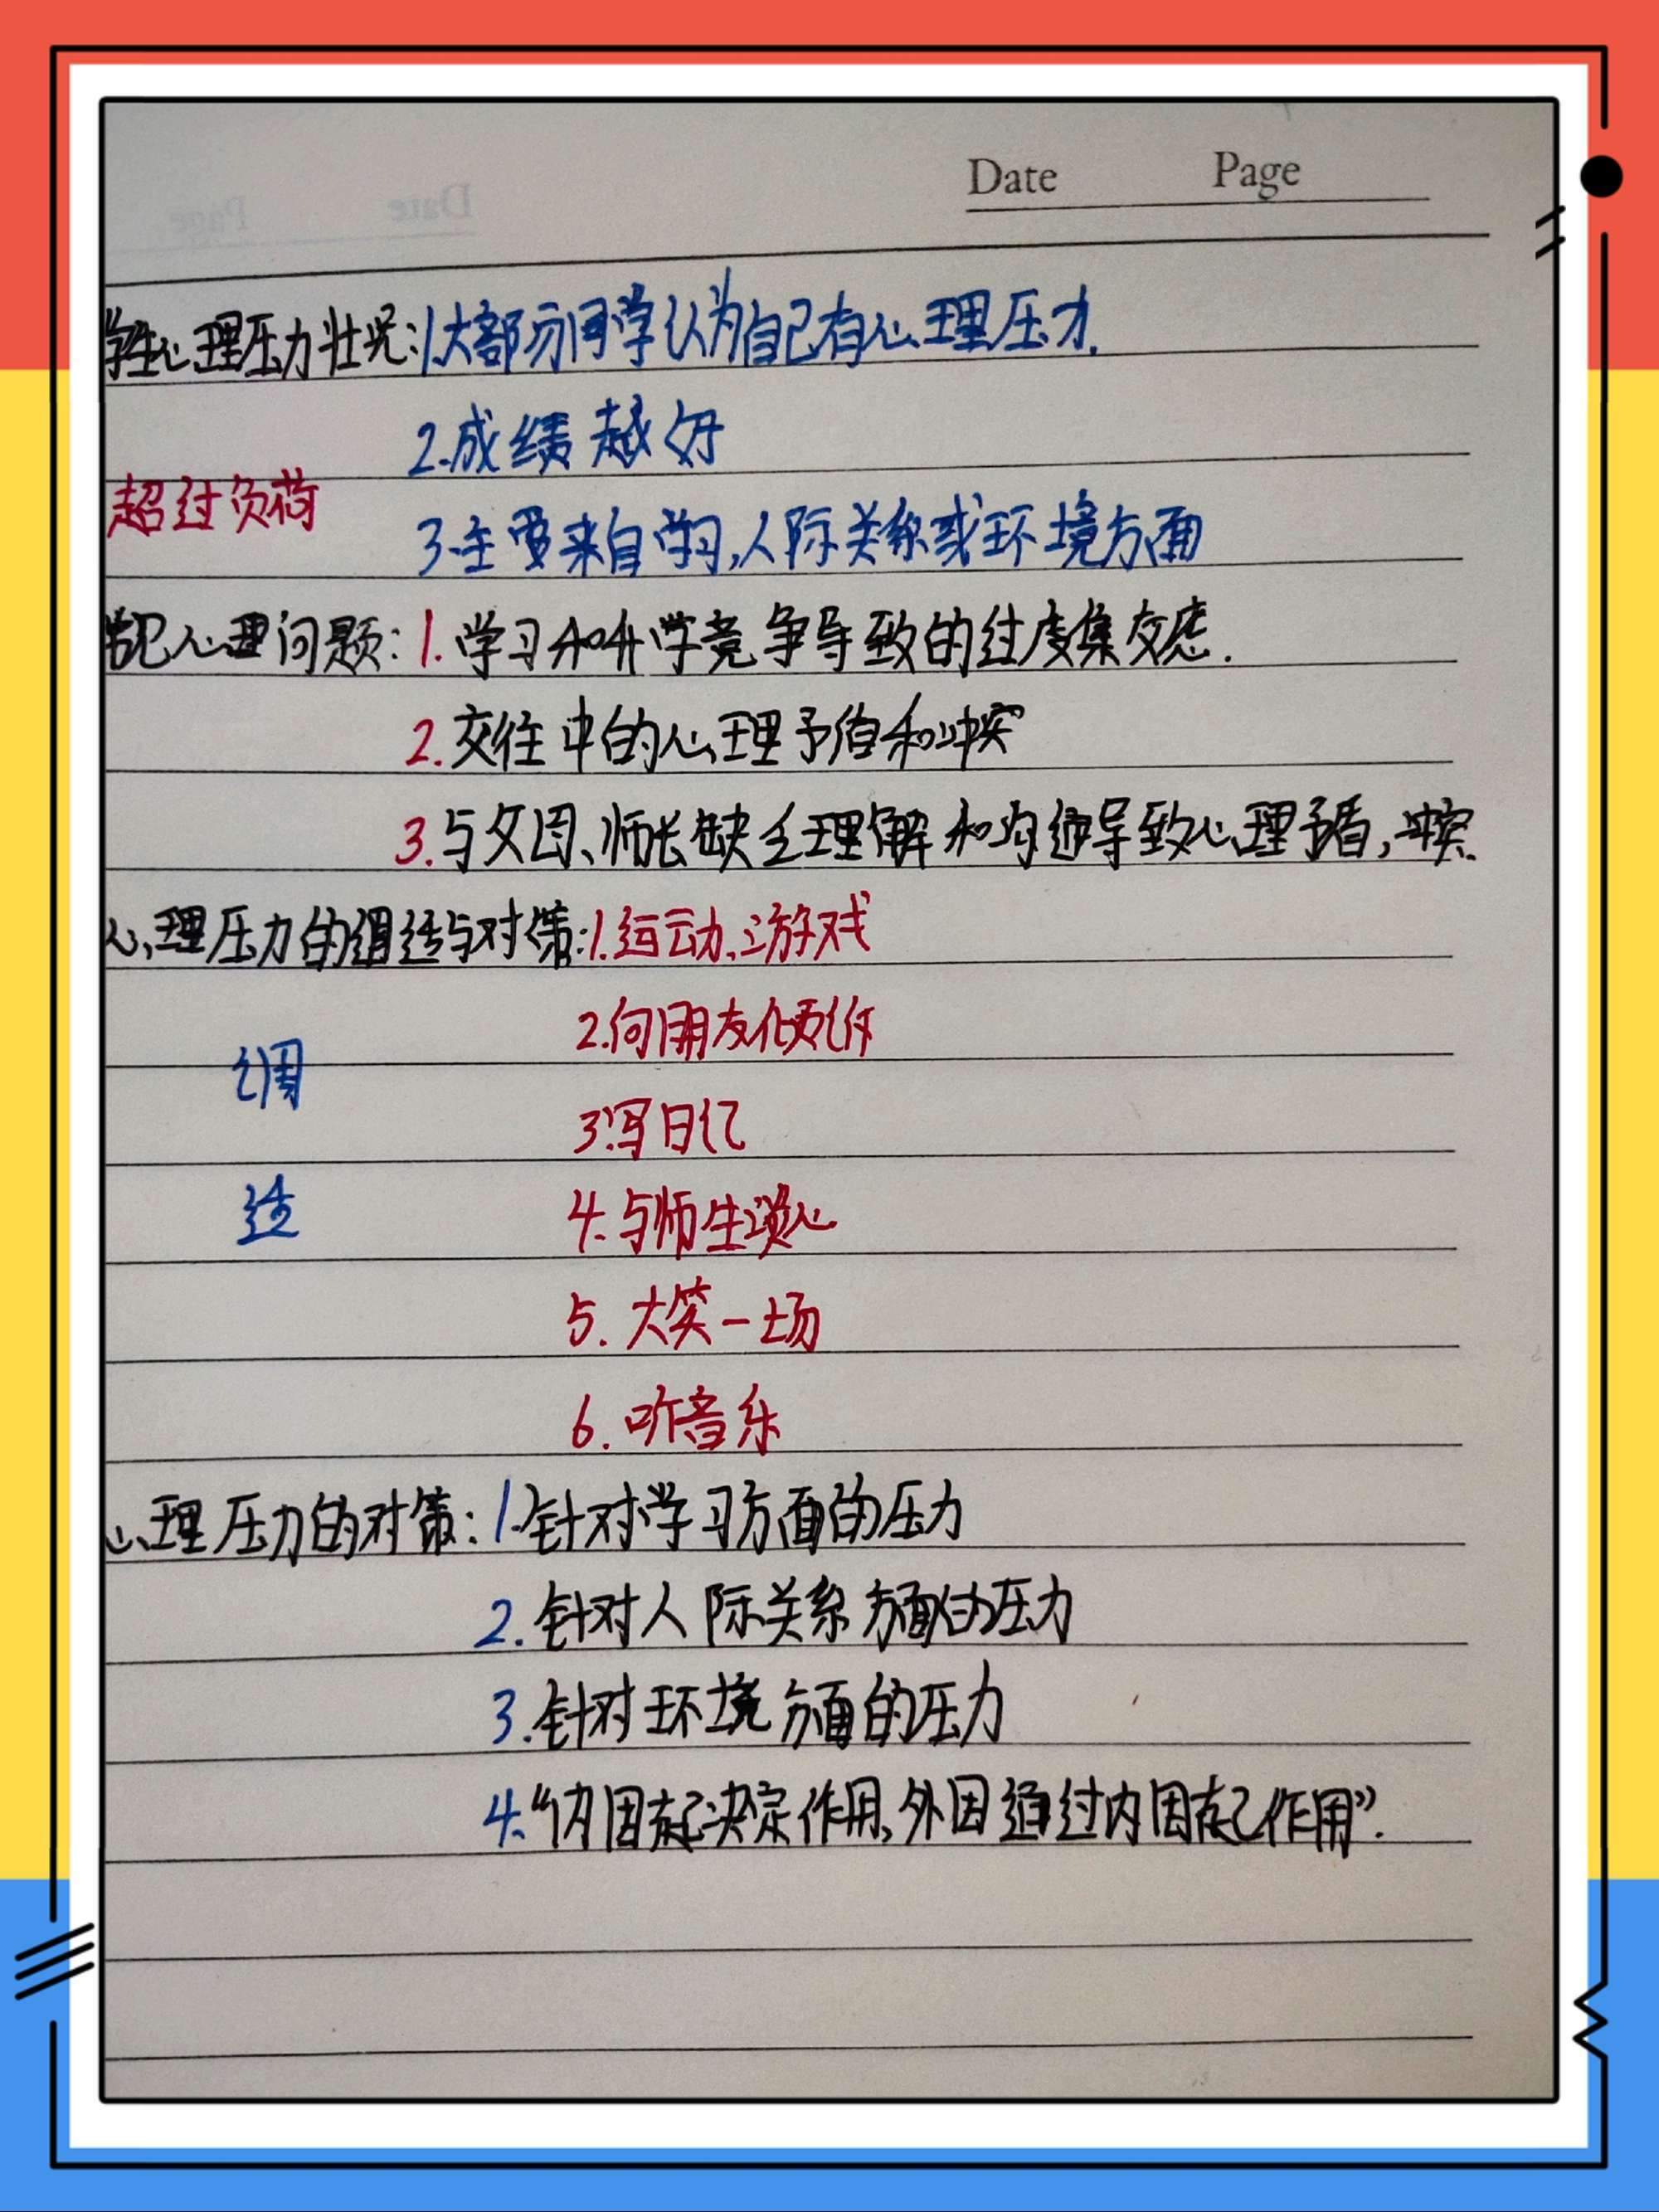 Date Page
学生心理压力壮况:1.大部分同学认为自己有心理压力.
2.成绩越好
超过负荷
3.主要来自学习,人际关系或环境方面
常见心理问题:1.学习和升学竞争导致的过度焦虑.
2.交往中的心理矛盾和冲突
3.与父母、师长缺乏理解和沟通导致心理矛盾,冲突.
心理压力的调适与对策:1.运动、游戏
2.向朋友倾诉
调
3.写日记
适
4.与师生谈心
5.大笑一场
6.听音乐
心理压力的对策:1.针对学习方面的压力
2.针对人际关系方面的压力
3.针对环境方面的压力
4.“内因起决定作用,外因通过内因起作用”.